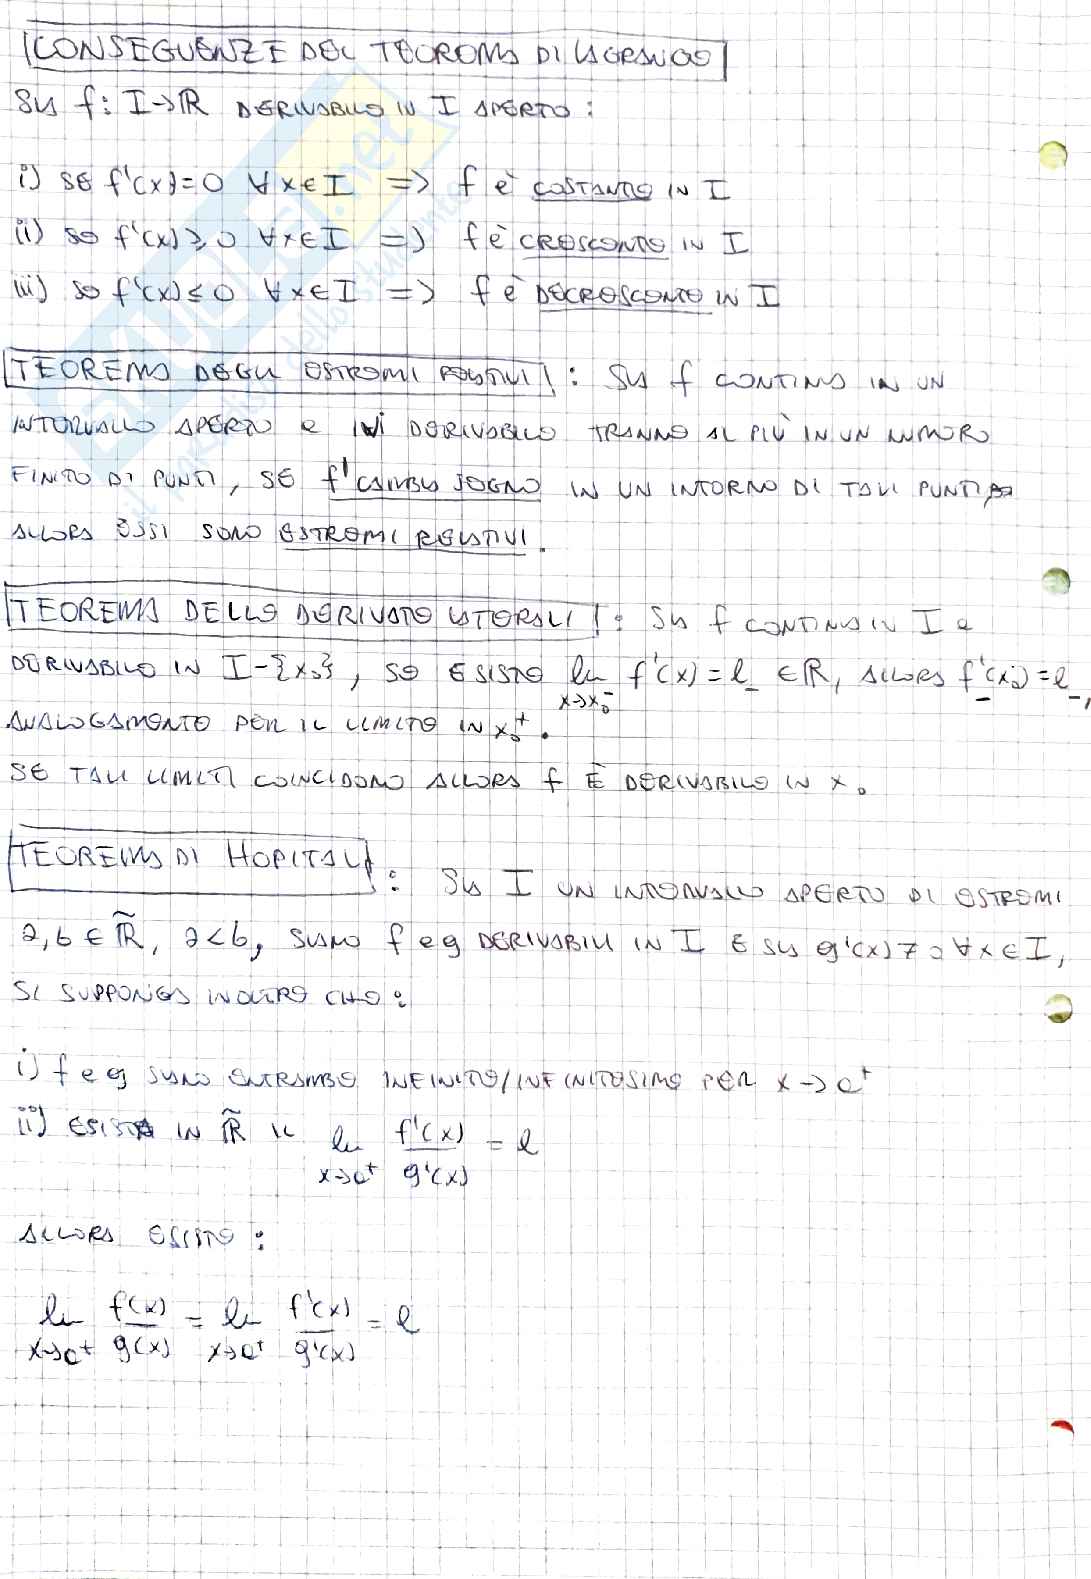 CONSEGUENZE DEL TEOREMA DI LAGRANGE
SIA f: I→ℝ DERIVABILE IN I APERTO:
i) SE f'(x)=0 ∀x∈I => f è COSTANTE IN I
ii) SE f'(x)≥0 ∀x∈I => f è CRESCENTE IN I
iii) SE f'(x)≤0 ∀x∈I => f è DECRESCENTE IN I
TEOREMA DEGLI ESTREMI RELATIVI: SIA f CONTINUA IN UN
INTERVALLO APERTO e IVI DERIVABILE TRANNE AL PIÙ IN UN NUMERO
FINITO DI PUNTI, SE f' CAMBIA SEGNO IN UN INTORNO DI TALI PUNTI
ALLORA ESSI SONO ESTREMI RELATIVI.
TEOREMA DELLE DERIVATE LATERALI: SIA f CONTINUA IN I e
DERIVABILE IN I-{x₀}, SE ESISTE lim f'(x)=l₋ ∈ℝ, ALLORA f'₋(x₀)=l₋,
x→x₀⁻
ANALOGAMENTE PER IL LIMITE IN x₀⁺.
SE TALI LIMITI COINCIDONO ALLORA f È DERIVABILE IN x₀
TEOREMA DI HOPITAL: SIA I UN INTERVALLO APERTO DI ESTREMI
a,b ∈ ℝ̃, a<b, SIANO f e g DERIVABILI IN I E SIA g'(x)≠0 ∀x∈I,
SI SUPPONGA INOLTRE CHE:
i) f e g SIANO ENTRAMBE INFINITE/INFINITESIME PER x→a⁺
ii) ESISTA IN ℝ̃ IL lim f'(x)/g'(x) = l
x→a⁺
ALLORA ESISTE:
lim f(x)/g(x) = lim f'(x)/g'(x) = l
x→a⁺ x→a⁺